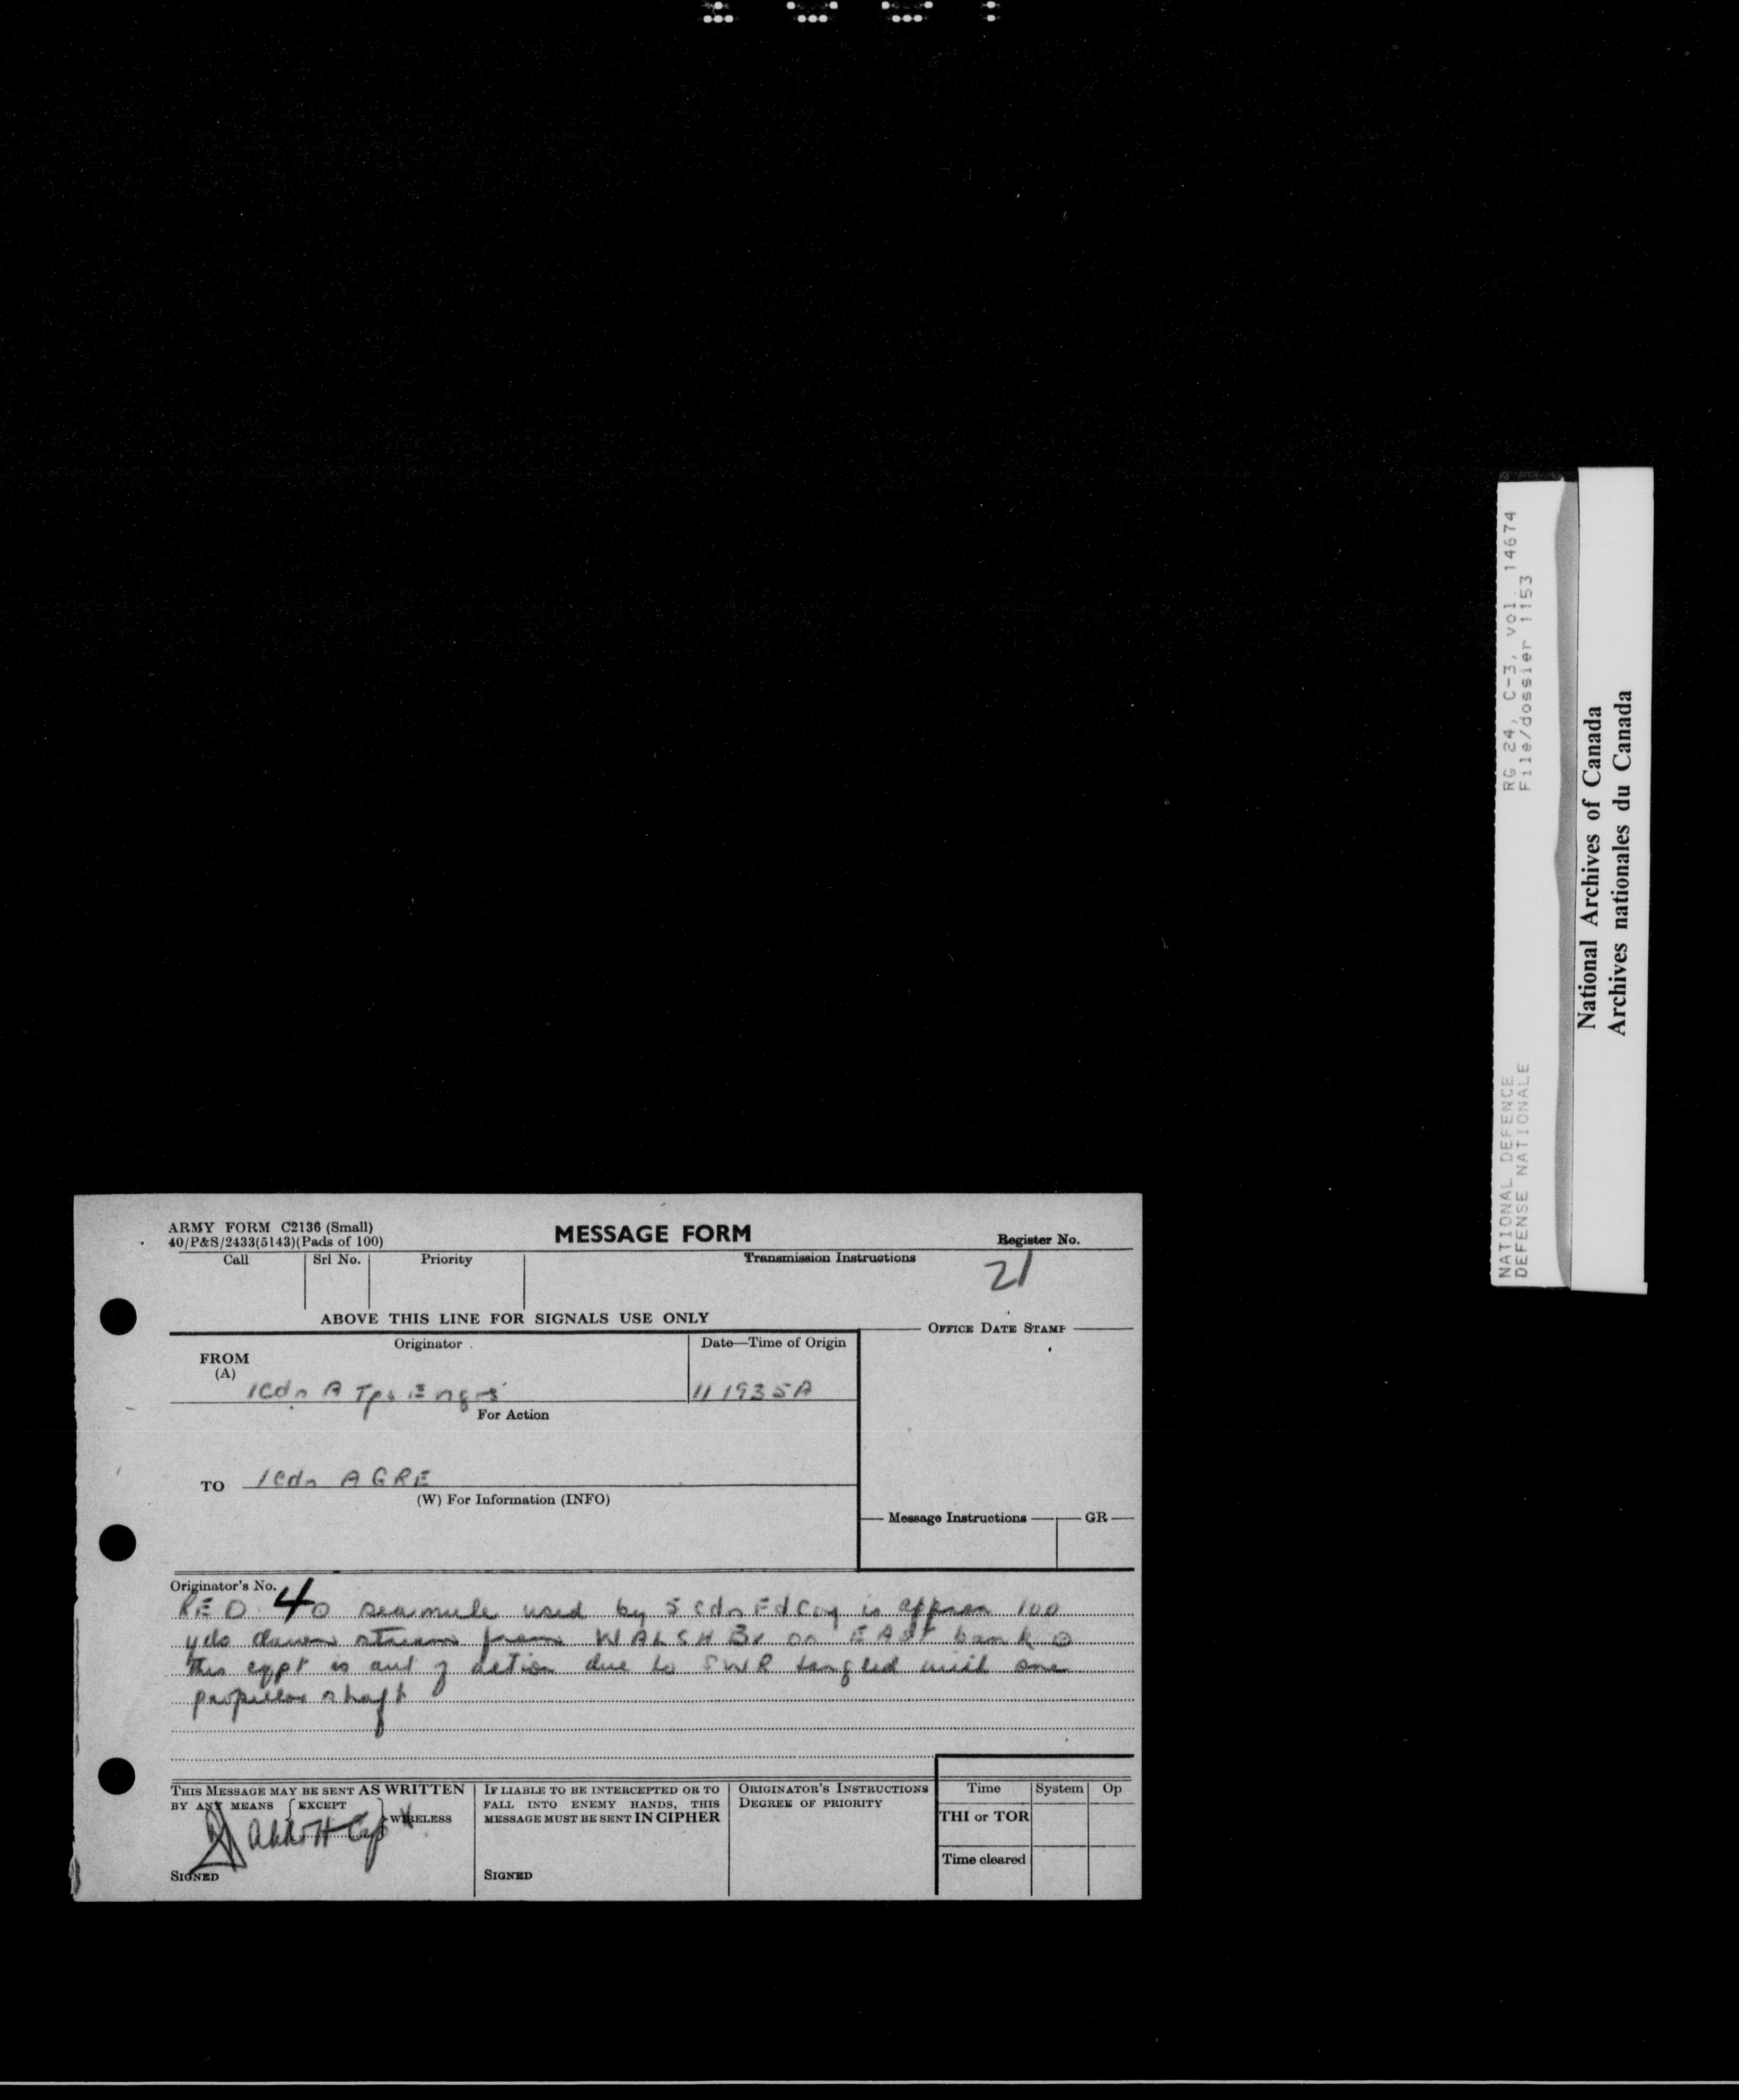 ARMY FORM C2136 (Small)
40/P&S/2433(5143)(Pads of 100)
MESSAGE FORM
Register No.
Call Srl No. Priority Transmission Instructions
21
ABOVE THIS LINE FOR SIGNALS USE ONLY
OFFICE DATE STAMP
Originator Date—Time of Origin
FROM
(A)
1 Cdn A Tps Engrs 111935A
For Action
TO 1 Cdn AGRE
(W) For Information (INFO)
Message Instructions GR
Originator's No.
RE O 40 seamule used by 5 Cdn Fd Coy is approx 100
yds down stream from WALSH Br on EAST bank O
This eqpt is out of action due to SWR tangled with one
propeller shaft
THIS MESSAGE MAY BE SENT AS WRITTEN
BY ANY MEANS EXCEPT WIRELESS
Abbott Cap
SIGNED
IF LIABLE TO BE INTERCEPTED OR TO
FALL INTO ENEMY HANDS, THIS
MESSAGE MUST BE SENT IN CIPHER
SIGNED
ORIGINATOR'S INSTRUCTIONS
DEGREE OF PRIORITY
Time System Op
THI or TOR
Time cleared
RG 24, C-3, vol. 14674
File/dossier 1153
NATIONAL DEFENCE
DEFENSE NATIONALE
National Archives of Canada
Archives nationales du Canada